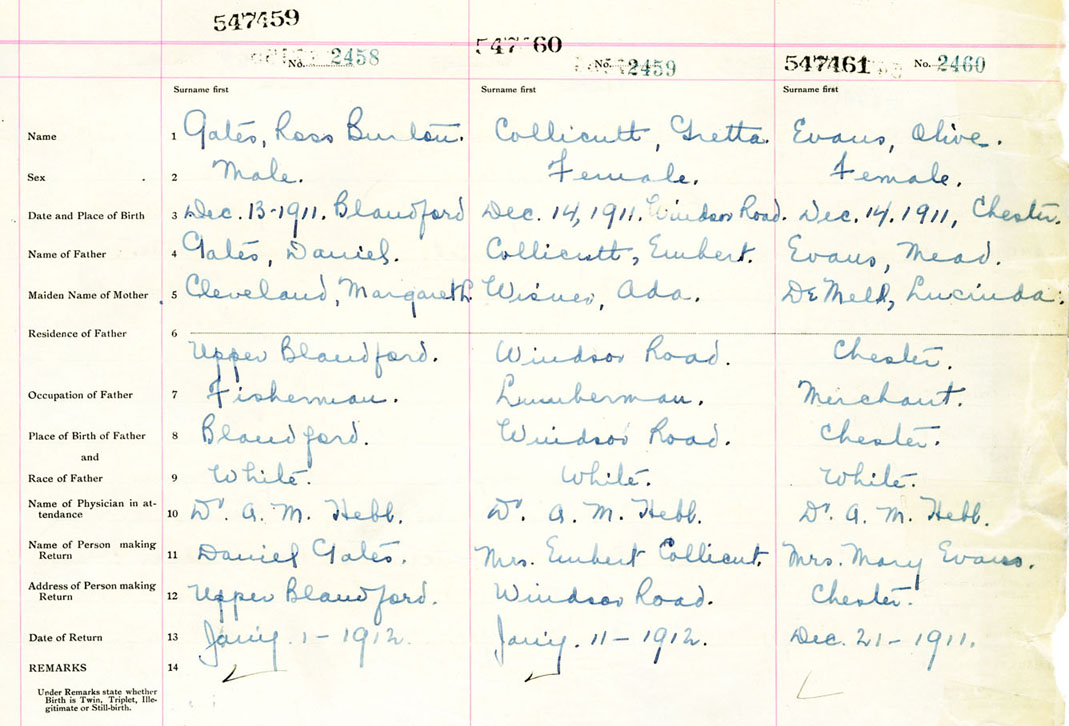 547459 547 60 547461
No. 2458 No. 2459 No. 2460
Surname first Surname first Surname first
Name 1 Gates, Ross Burton. Collicutt, Gretta. Evans, Olive.
Sex 2 Male. Female. Female.
Date and Place of Birth 3 Dec. 13-1911. Blandford Dec. 14, 1911. Windsor Road. Dec. 14. 1911, Chester.
Name of Father 4 Gates, Daniel. Collicutt, Embert. Evans, Mead.
Maiden Name of Mother 5 Cleveland, Margaret L. Wisner, Ada. Lucinda.
Residence of Father 6
Upper Blandford. Windsor Road. Chester.
Occupation of Father 7 Fisherman. Lumberman. Merchant.
Place of Birth of Father 8 Blandford. Windsor Road. Chester.
and
Race of Father 9 White. White. White.
Name of Physician in at-
tendance 10 Dr. A. M. Hebb. Dr. A. M. Hebb. Dr. A. M. Hebb.
Name of Person making
Return 11 Daniel Gates. Mrs. Embert Collicut. Mrs. Mary Evans.
Address of Person making
Return 12 Upper Blandford. Windsor Road. Chester.
Date of Return 13 Jan'y. 1-1912. Jan'y. 11-1912. Dec. 21-1911.
REMARKS 14
Under Remarks state whether
Birth is Twin, Triplet, Ille-
gitimate or Still-birth.